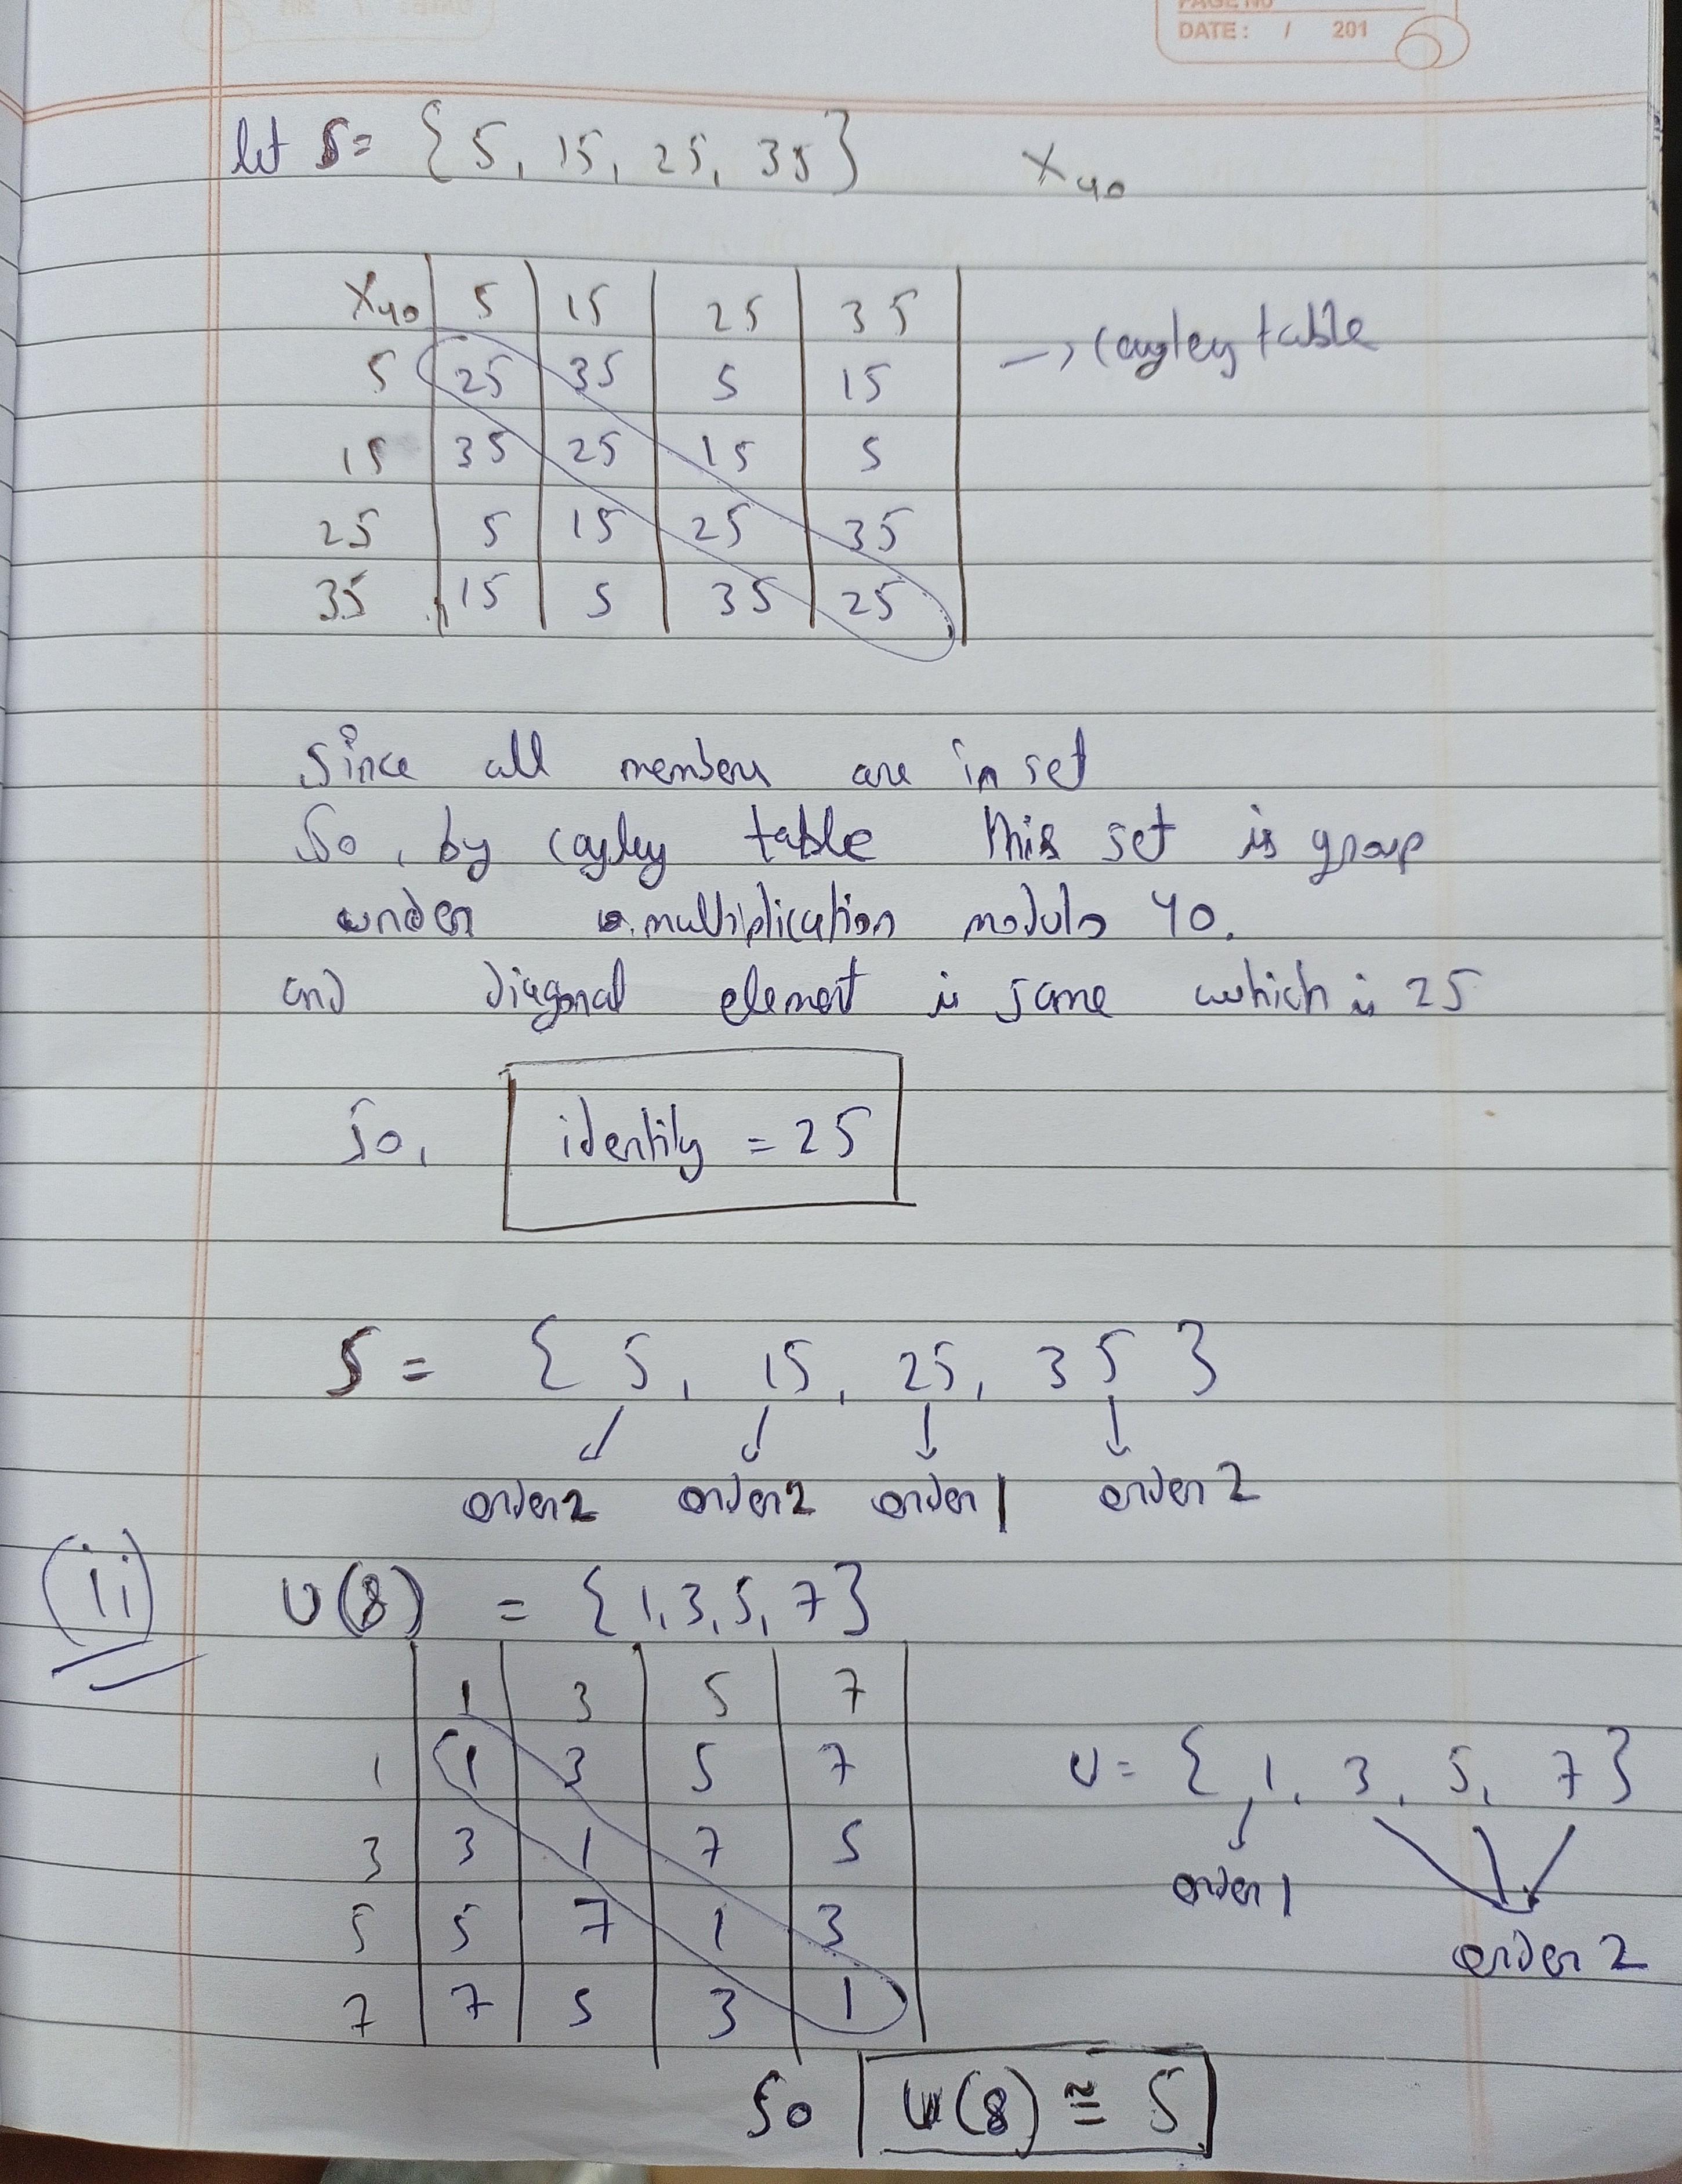 PAGE NO
DATE: / 201
let S = {5, 15, 25, 35} X40
X40 5 15 25 35
5 25 35 5 15 → Cayley table
15 35 25 15 5
25 5 15 25 35
35 15 5 35 25
Since all members are in set
So, by Cayley table this set is group
under multiplication modulo 40.
and diagonal element is same which is 25
So, identity = 25
S = {5, 15, 25, 35}
order 2 order 2 order 1 order 2
(ii) U(8) = {1, 3, 5, 7}
1 3 5 7
1 1 3 5 7 U = {1, 3, 5, 7}
3 3 1 7 5 order 1
5 5 7 1 3 order 2
7 7 5 3 1
So U(8) ≅ S